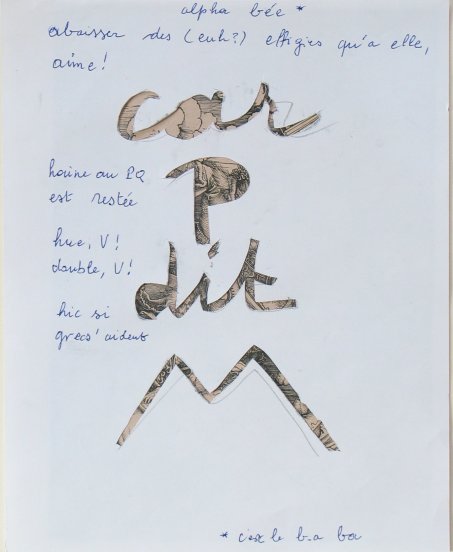 alpha bée *
abaisser des (euh?) effigies qu'a elle,
aime!
car
haine au PQ
est restée
P
hue, V!
double, V!
dit
hic si
grecs' aident
M
* c'est le b.a ba